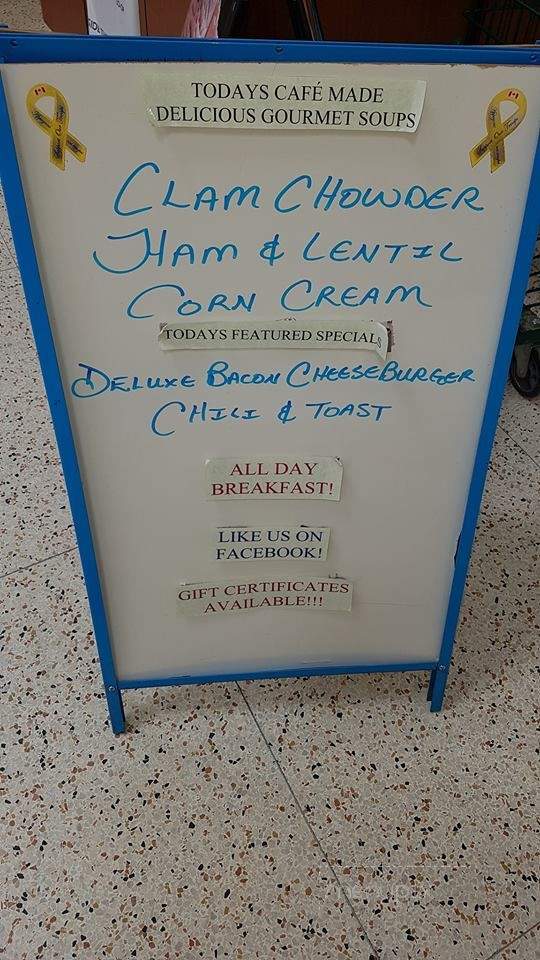 TODAYS CAFÉ MADE
DELICIOUS GOURMET SOUPS
CLAM CHOWDER
HAM & LENTIL
CORN CREAM
TODAYS FEATURED SPECIALS
DELUXE BACON CHEESEBURGER
CHILI & TOAST
ALL DAY
BREAKFAST!
LIKE US ON
FACEBOOK!
GIFT CERTIFICATES
AVAILABLE!!!